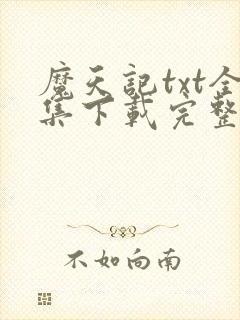 魔天記txt全
集下載完整
不如向南